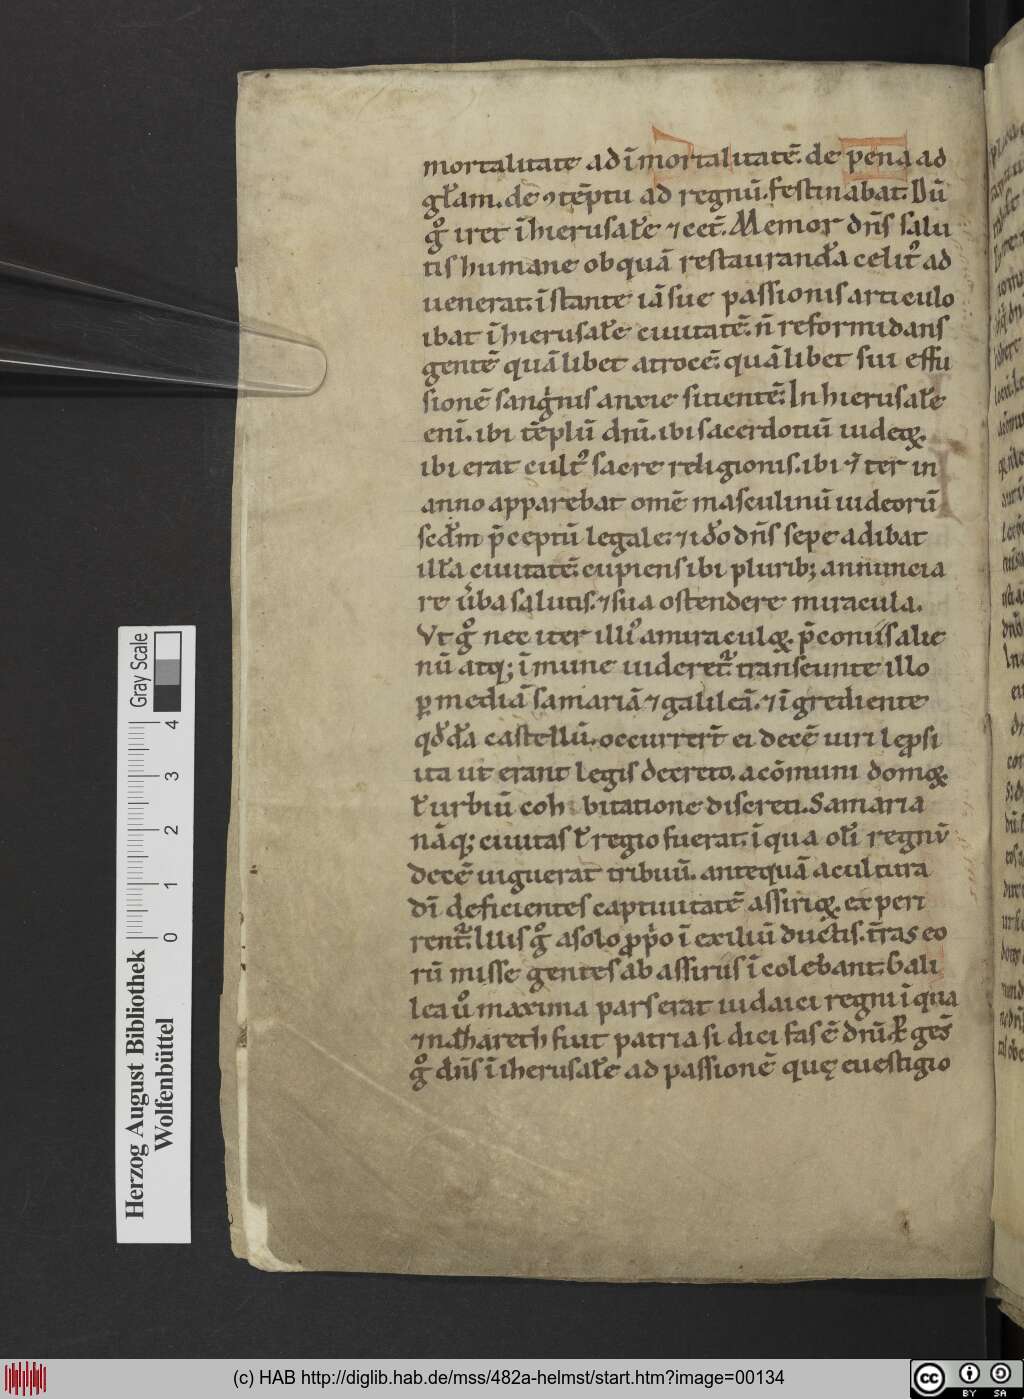 mortalitate ad īmortalitatē. de pena ad
gl̄am. de ꝯtēptu ad regnū. festinabat. Dū
gͦ iret ī hierusalē ⁊ cet̄. Memor dn̄s salu
tis humane ob quā restaurand̄a celitꝰ ad
uenerat. īstante iā sue passionis articulo
ibat ī hierusalē ciuitatē. n̄ reformidans
gentē quālibet atrocē. quālibet sui effu
sionē sangⁱnis anxie sitientē. In hierusalē
eni. ibi tēplū dn̄i. ibi sacerdotiū iudeoꝝ.
ibi erat cultꝰ sacre religionis. ibi ⁊ ter in
anno apparebat omē masculinū iudeorū
scd̄m p̄ceptū legale. ⁊ iđo dn̄s sepe adibat
illa ciuitatē. cupiens ibi plurib; annuncia
re ūba salutis. ⁊ sua ostendere miracula.
Vt gͦ nec iter illiꝰ a miraculoꝝ. p̄coniis alie
nū atq; īmune uideret᷑. transeunte illo
ꝑ mediā samariā ⁊ galileā. ⁊ īgrediente
qđdā castellū. occurrer̄t ei decē uiri leprosi
ita ut erant legis decreto. a cōmuni domoꝝ.
ł urbiū coh bitatione discreti. Samaria
nāq; ciuitas ł regio fuerat. ī qua olī regnū
decē uiguerat tribuū. antequā a cultura
dī deficientes captiuitatē assirioꝝ. experi
rent᷑. Illis gͦ a solo ꝓpⁱo ī exiliū ductis. t̄ras eo
rū misse gentes ab assiriis īcolebant. Gali
lea ūͦ maxima pars erat iudaici regni ī qua
⁊ nazhareth fuit patria si dici fas ē dn̄i.
gͦ dn̄s ī iherusalē ad passionē quę euestigio
Herzog August Bibliothek
Wolfenbüttel
0 1 2 3 4
Gray Scale
(c) HAB http://diglib.hab.de/mss/482a-helmst/start.htm?image=00134
cc BY SA